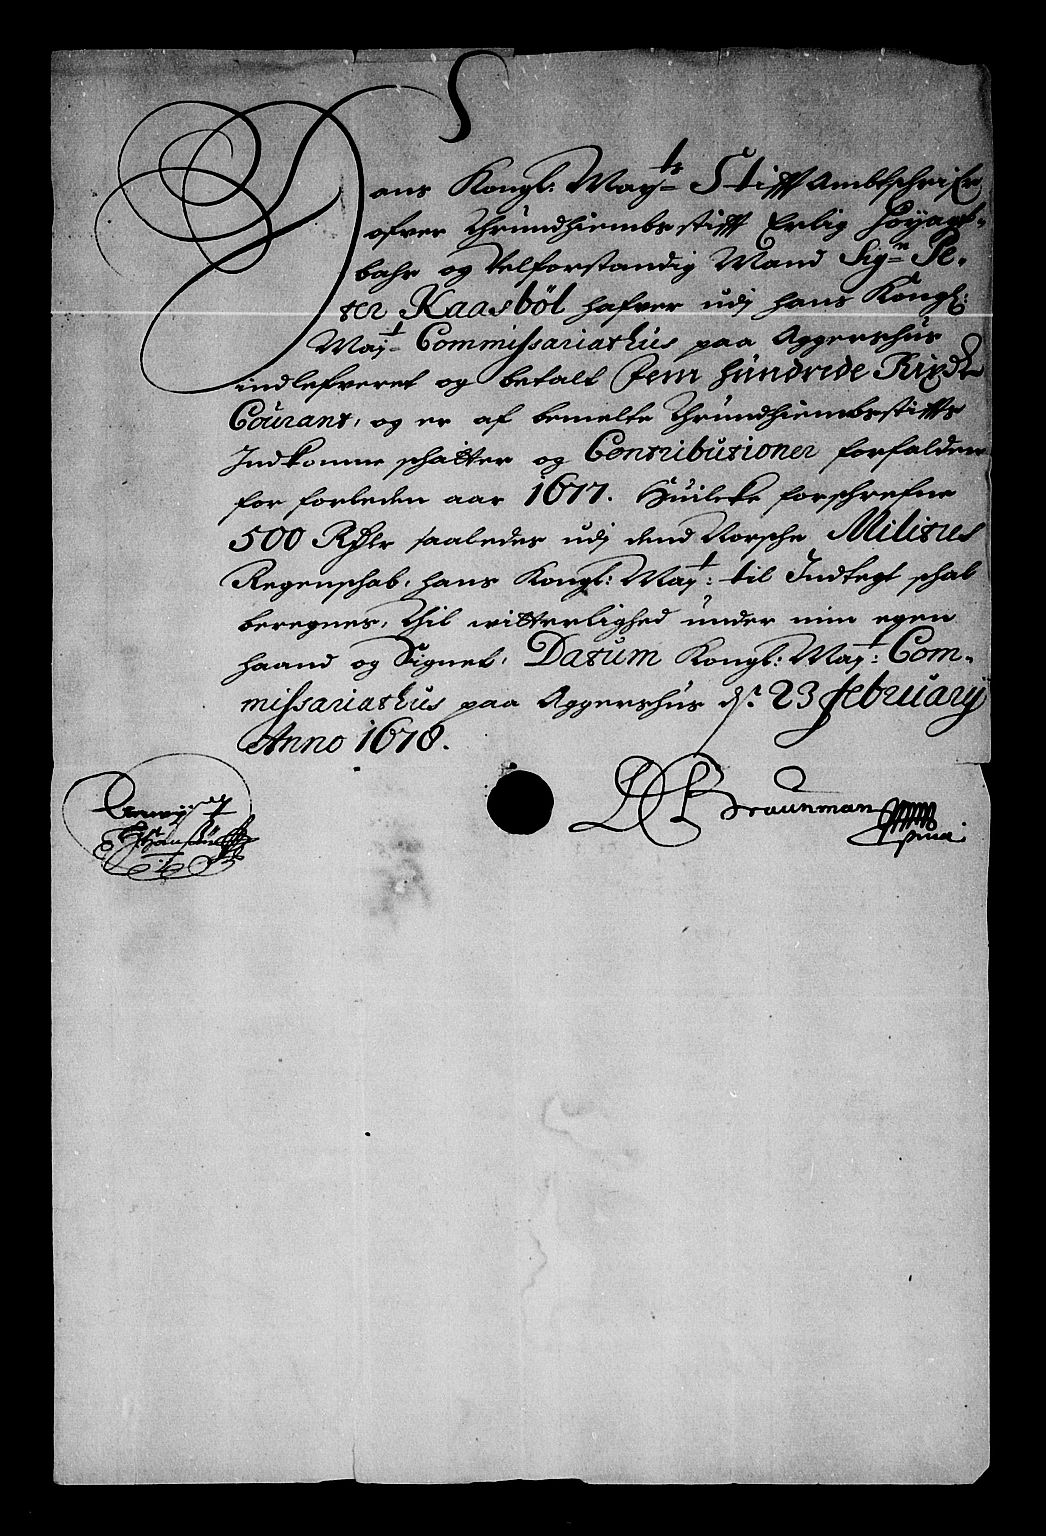 Hans Kongl: May:ts Stifft Ambtschrifr
ofver Thrundhiembs stifft Erlig Høyagt-
bahr og velforstandig Mand Sigr Pe-
ter Kaasbøl hafver udj hans Kongl:
May:t Commissariathus paa Aggershus
indlefveret og betalt fem hundrede Rixdr
Courant, og er af bemelte Thrundhiembsstiffts
Indkomne schatter og Contributioner forfalden
for forleden aar 1677. Huilcke forschrefne
500 Rdlr saaledes udj dend Norsche Milities
Regenschab, hans Kongl: May:t til Indtegt schal
beregnes, Thil witterlighed under min egen
haand og Signet, Datum Kongl: May:t Com-
missariathus paa Aggershus d. 23 february
Anno 1678.
Braunman